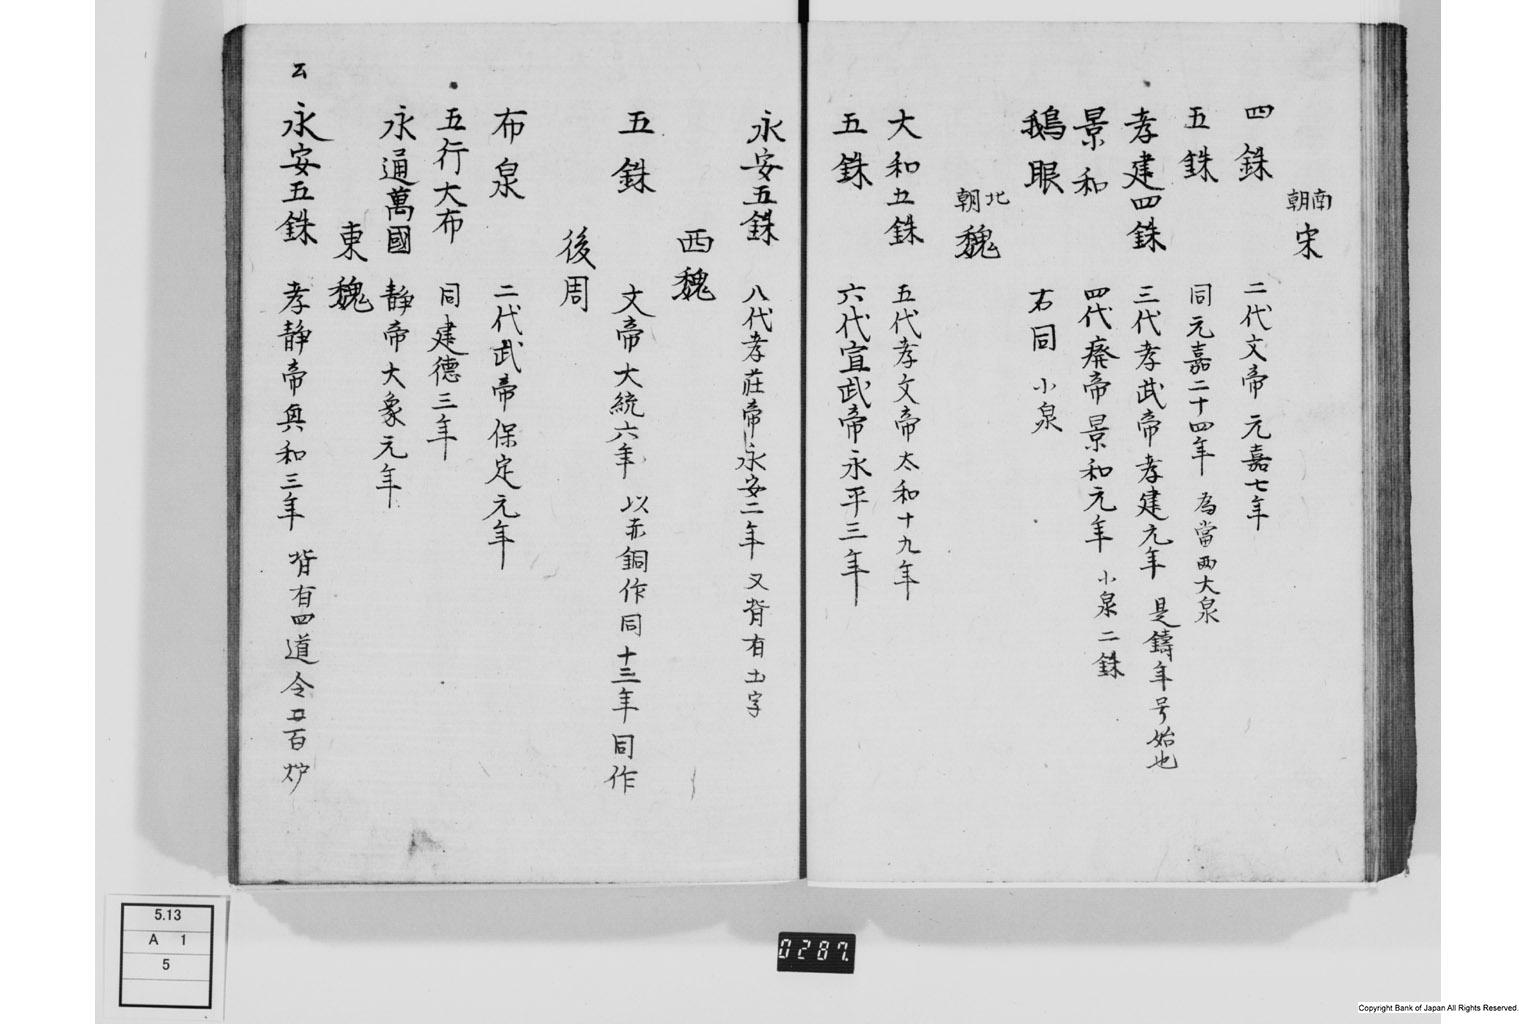 南朝 宋
四銖 二代文帝 元嘉七年
五銖 同 元嘉二十四年 為當兩大泉
孝建四銖 三代孝武帝 孝建元年 是鑄年号始也
景和 四代廃帝 景和元年 小泉二銖
鵝眼 右同 小泉
北朝 魏
大和五銖 五代孝文帝 太和十九年
五銖 六代宣武帝 永平三年
永安五銖 八代孝莊帝 永安二年 又背有土字
西魏
五銖 文帝大統六年 以赤銅作同十三年同作
後周
布泉 二代武帝保定元年
五行大布 同建德三年
永通萬國 靜帝大象元年
東魏
永安五銖 孝靜帝興和三年 背有四道令五百炉
5.13
A 1
5
0287.
Copyright Bank of Japan All Rights Reserved.